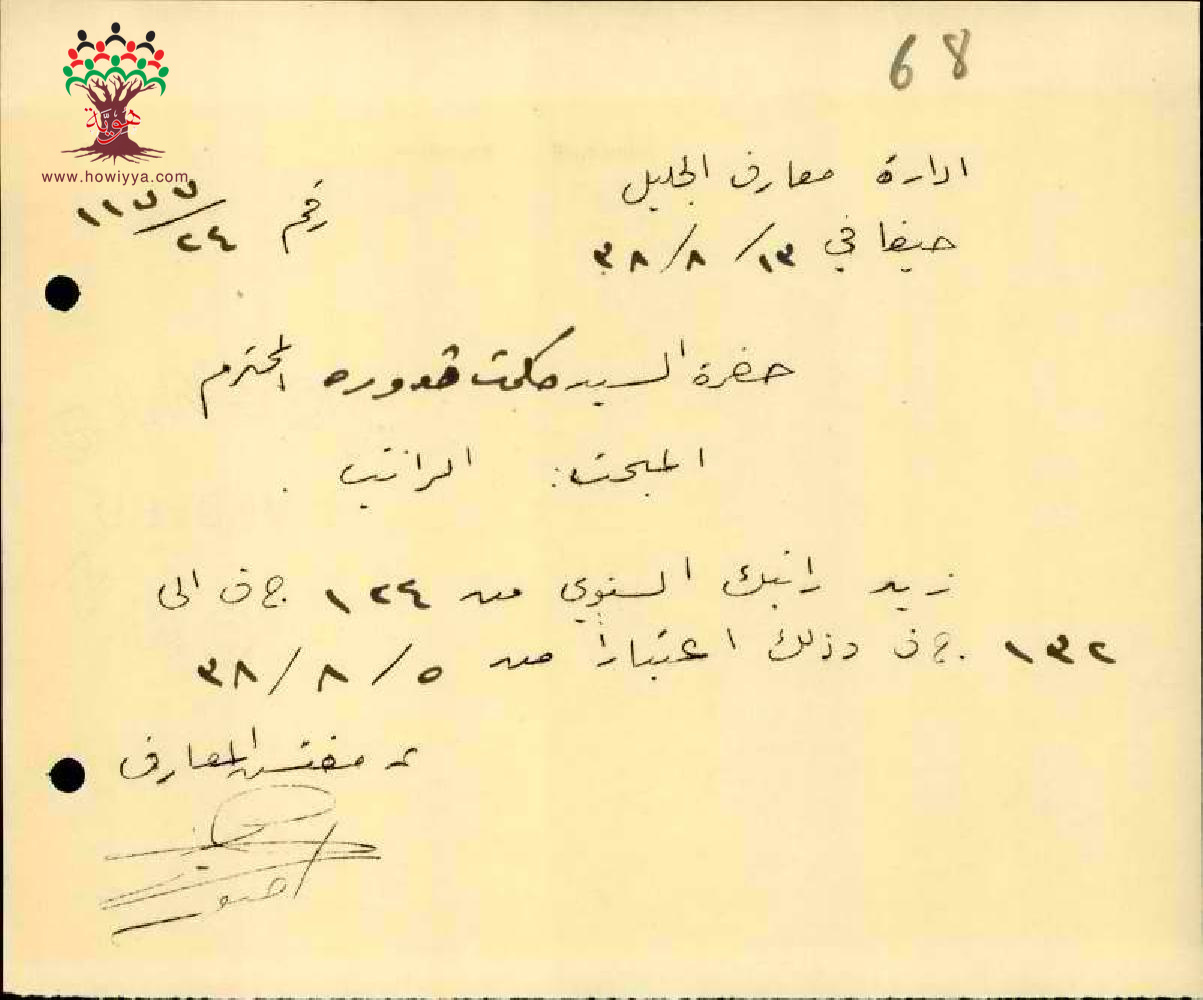 68
هويّة
www.howiyya.com
ادارة معارف الجليل
حيفا في ١٣/٨/٣٨
رقم ٢٤/
حضرة السيد حكمت قدوره المحترم
المبحث: الراتب .
زيد راتبك السنوي من ١٢٤ ج ف الى
١٣٢ ج ف وذلك اعتباراً من ٥/٨/٣٨
عـ مفتش المعارف